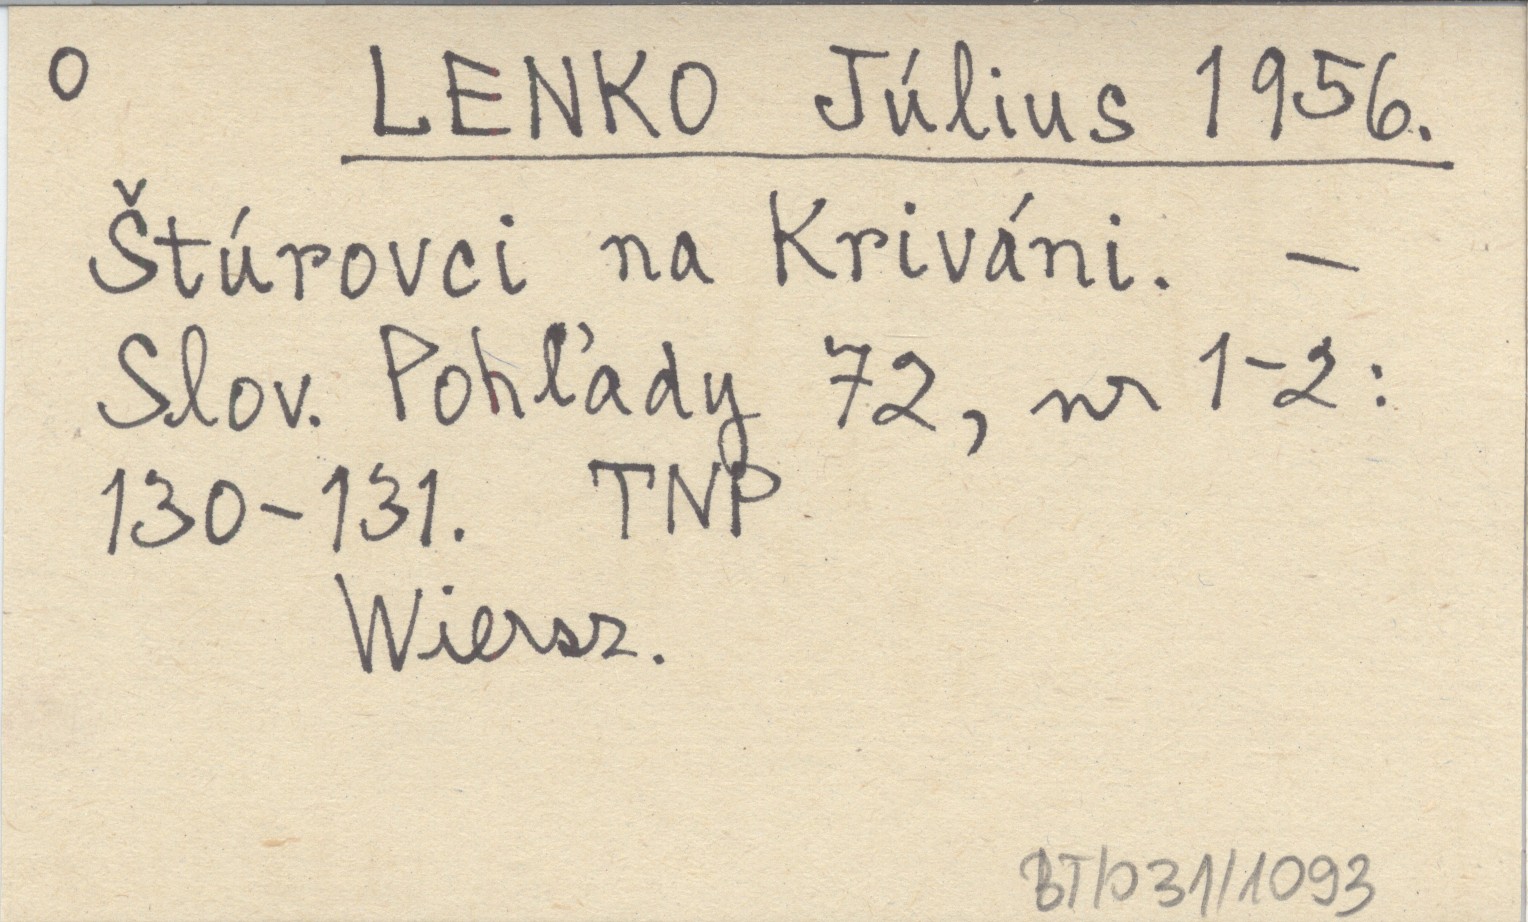 O LENKO Július 1956.
Štúrovci na Kriváni. –
Slov. Pohľady 72, nr 1-2:
130-131. TNP
Wiersz.
BT/031/1093